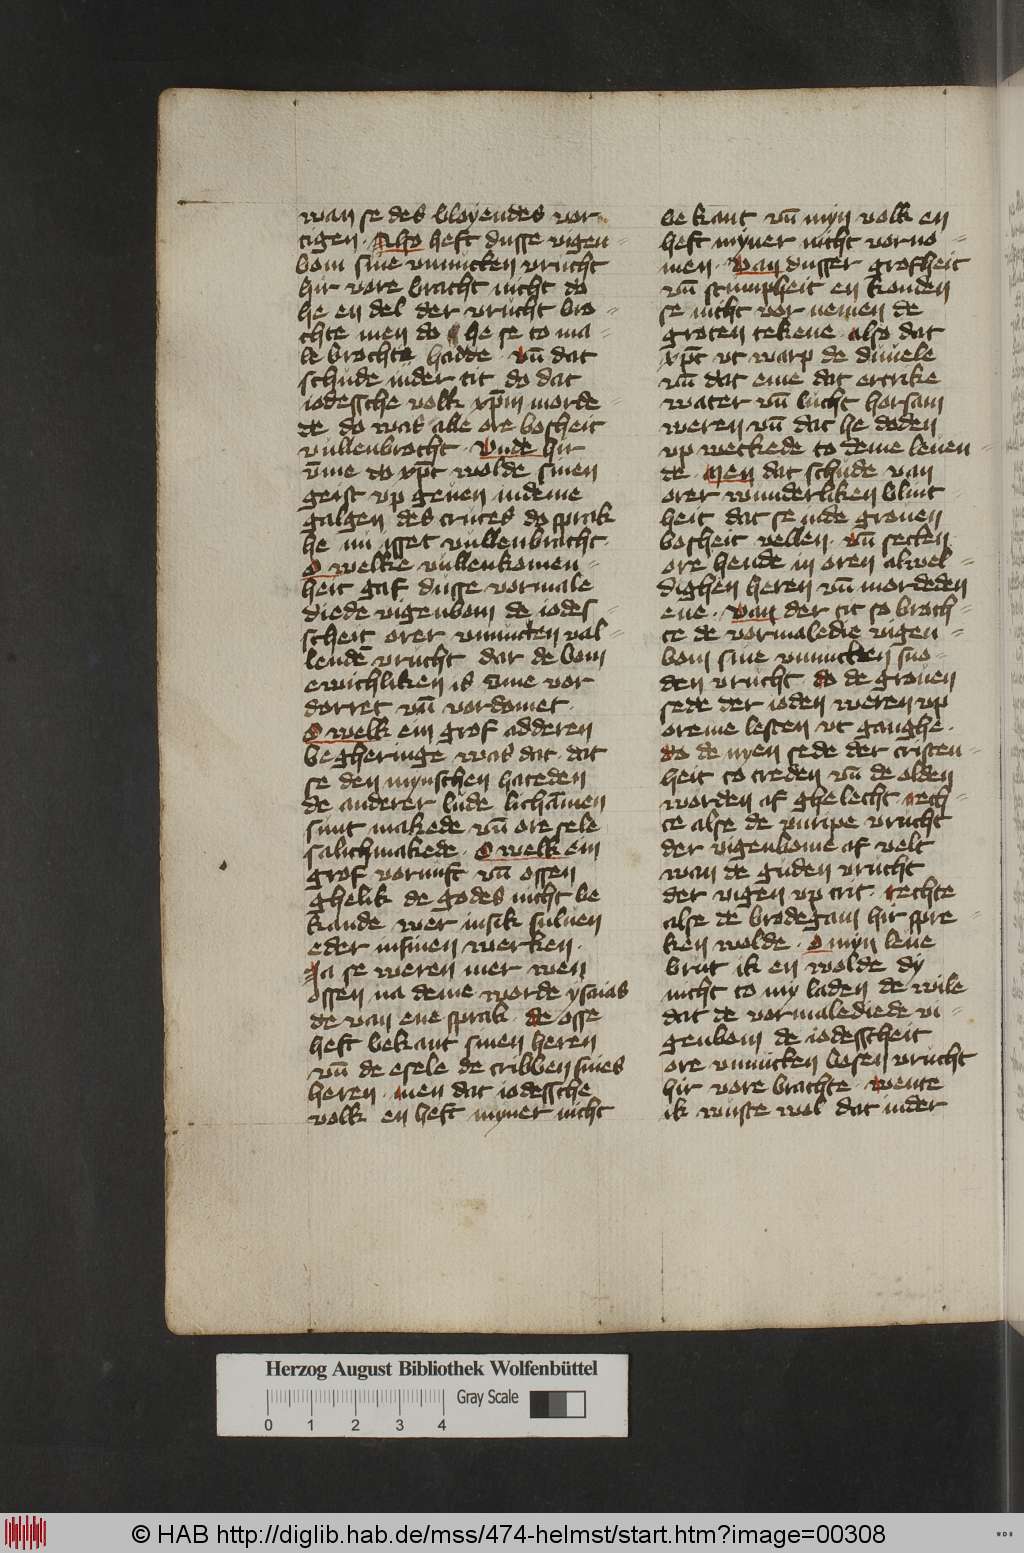 wan se des bloyendes vor
tigen · Also heft dusse vigen
bom sine vnnutten vrucht
hir vore bracht nicht do
he en del der vrucht bro
chte men do he se to ma
le brochte hadde · vn̄ dat
schude inder tit do dat
iodessche volk xp̄m morde
de do was alle ore bosheit
vullenbrocht · Vnde hir
v̄me do xp̄c wolde sinen
geist vp geuen indeme
galgen des cruces do sprak
he nu isset vullenbracht
O welke vullenkomen
heit gaf dusse vormale
diede vigenbom de iodes
scheit orer vnnutten val
lende vrucht dar de bom
ewichliken is v̄me vor
dorret vn̄ vordomet ·
O welk ein grof adderen
begheringe was dat · dat
se den mynschen hateden
de anderer lude lichāmen
sunt makede vn̄ ore sele
salichmakede · O welk ein
grof vornuft vn̄ ossen
ghelik de godes nicht be
kande wer insik suluen
eder in sinen werken ·
Ja se weren mer wen
ossen na deme worde ysaias
de van ene sprak · de osse
heft bekant sinen heren
vn̄ de esele de cribben sines
heren · men dat iodessche
volk en heft myner nicht
bekant vn̄ myn volk en
heft myner nicht vorno
men · Van dusser grofheit
vn̄ stumpheit en konden
se nicht vor nemen de
groten tekene · also dat
xp̄c vt warp de duuele
vn̄ dat eme dat ertrike
water vn̄ lucht horsam
weren vn̄ dat he doden
vp weckede to deme leuen
de · Men dat schude van
orer wunderliken blint
heit dat se in de grouen
bosheit vellen · vn̄ secken
ore hende in oren alwel
dighen heren vn̄ mordeden
ene · Van der tit so broch
te de vormaledie vigen
bom sine vnnutten sno
den vrucht do de grouen
sede der ioden weren vp
oreme lesten vt ganghe ·
do de nyen sede der cristen
heit to treden vn̄ de olden
worden af ghelecht rech
te alse de vnripe vrucht
der vigenbome af velt
wan de guden vrucht
der vigen vp trit · rechte
alse de brodegam hir spre
ken wolde · O myn leue
brut ik en wolde dy
nicht to my laden de wile
dat de vormalediede vi
genbom de iodesscheit
ore vnnutten bosen vrucht
hir vore brachte · wente
ik wuste wol dat in der
Herzog August Bibliothek Wolfenbüttel
Gray Scale
0 1 2 3 4
© HAB http://diglib.hab.de/mss/474-helmst/start.htm?image=00308